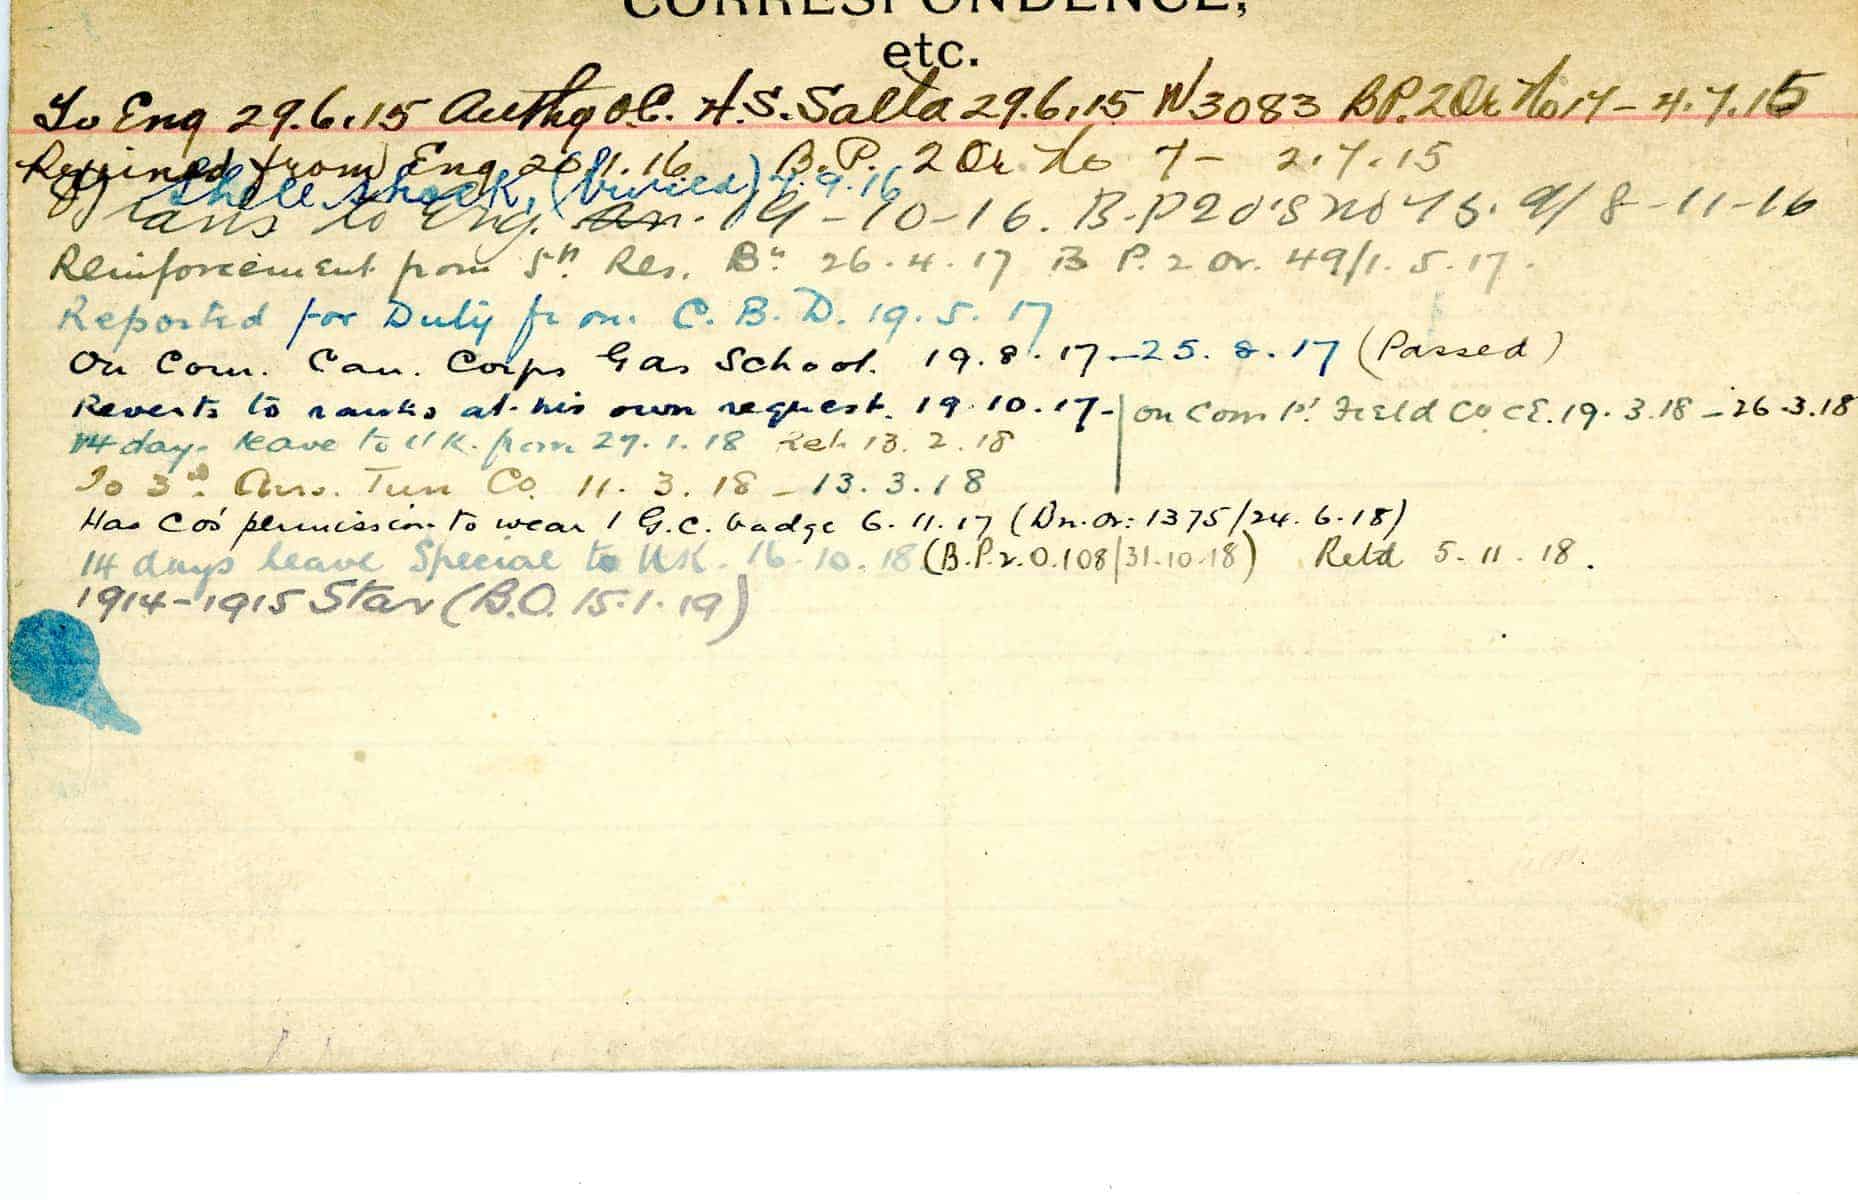 CORRESPONDENCE,
etc.
To Eng 29.6.15 Authy O.C. H.S. Salta 29.6.15 N3083 B.P. 2 Or No 14 - 4.7.15
Rejoined from Eng 20.1.16 B.P. 2 Or No 7 - 2.7.15
Shell shock, (buried) 9.16
Trans to Eng. 19-10-16. B.P 2 O's no 75. 9/8-11-16
Reinforcement from 5th Res. Bn 26.4.17 B P. 2 Or. 49/1.5.17.
Reported for Duty from C. B. D. 19.5.17
On Com. Can. Corps Gas School. 19.8.17-25.8.17 (Passed)
Reverts to ranks at his own request. 19.10.17- | On Com 1st Field Co CE. 19.3.18 - 26.3.18
14 days leave to U K. from 27.1.18 Ret. 13.2.18
To 3rd Aus. Tun Co. 11.3.18 - 13.3.18
Has Co's permission to wear 1 G.C. badge 6.11.17 (Bn. Or: 1375/24.6.18)
14 days leave Special to UK. 16.10.18 (B.P.2.O.108/31.10.18) Retd 5.11.18.
1914-1915 Star (B.O. 15.1.19)